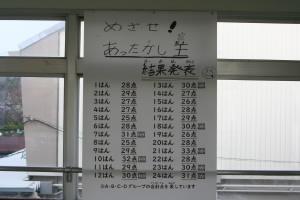 めざせ!
あったかし笙
結果発表
1はん 28点
2はん 29点
3はん 27点
4はん 27点
5はん 28点
6はん 27点
7はん 31点
8はん 28点
9はん 29点
10はん 32点
11はん 29点
12はん 30点
13はん 30点
14はん 27点
15はん 27点
16はん 29点
17はん 30点
18はん 29点
19はん 30点
20はん 28点
21はん 33点
22はん 28点
23はん 30点
24はん 31点
※A・B・C・Dグループの合計点を表しています